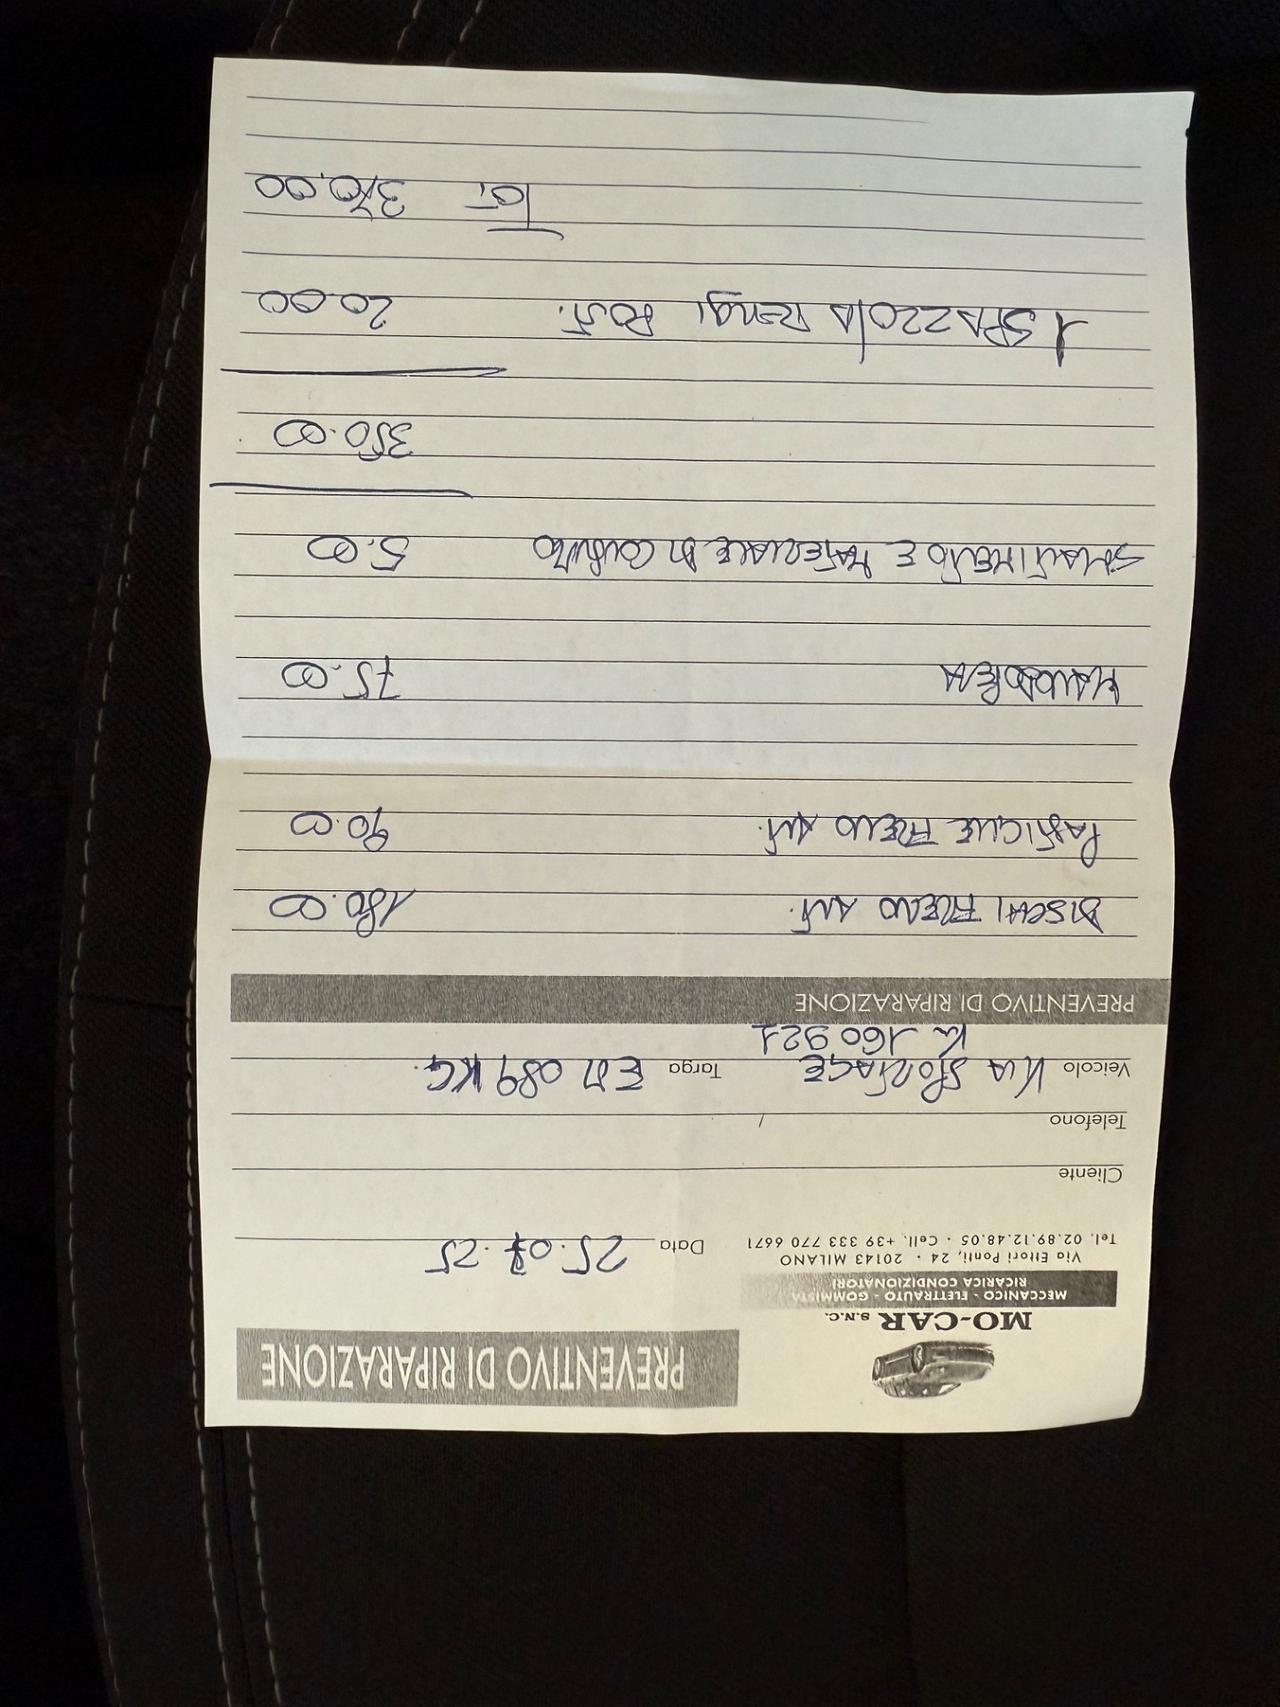 PREVENTIVO DI RIPARAZIONE
MO-CAR S.N.C.
MECCANICO - ELETTRAUTO - GOMMISTA
RICARICA CONDIZIONATORI
Via Ettori Ponti, 24 · 20143 MILANO
Tel. 02.89.12.48.05 · Cell. +39 333 770 6671
Data 25.07.25
Cliente
Telefono
Veicolo KIA SPORTAGE Targa EM 089 KG.
Km 160921
PREVENTIVO DI RIPARAZIONE
DISCHI FRENO ANT. 180.00
PASTIGLIE FRENO ANT. 90.00
MANODOPERA 75.00
SMALTIMENTO E MATERIALE DI CONSUMO 5.00
350.00
1 SPAZZOLA TERGI POST. 20.00
TOT 370,00